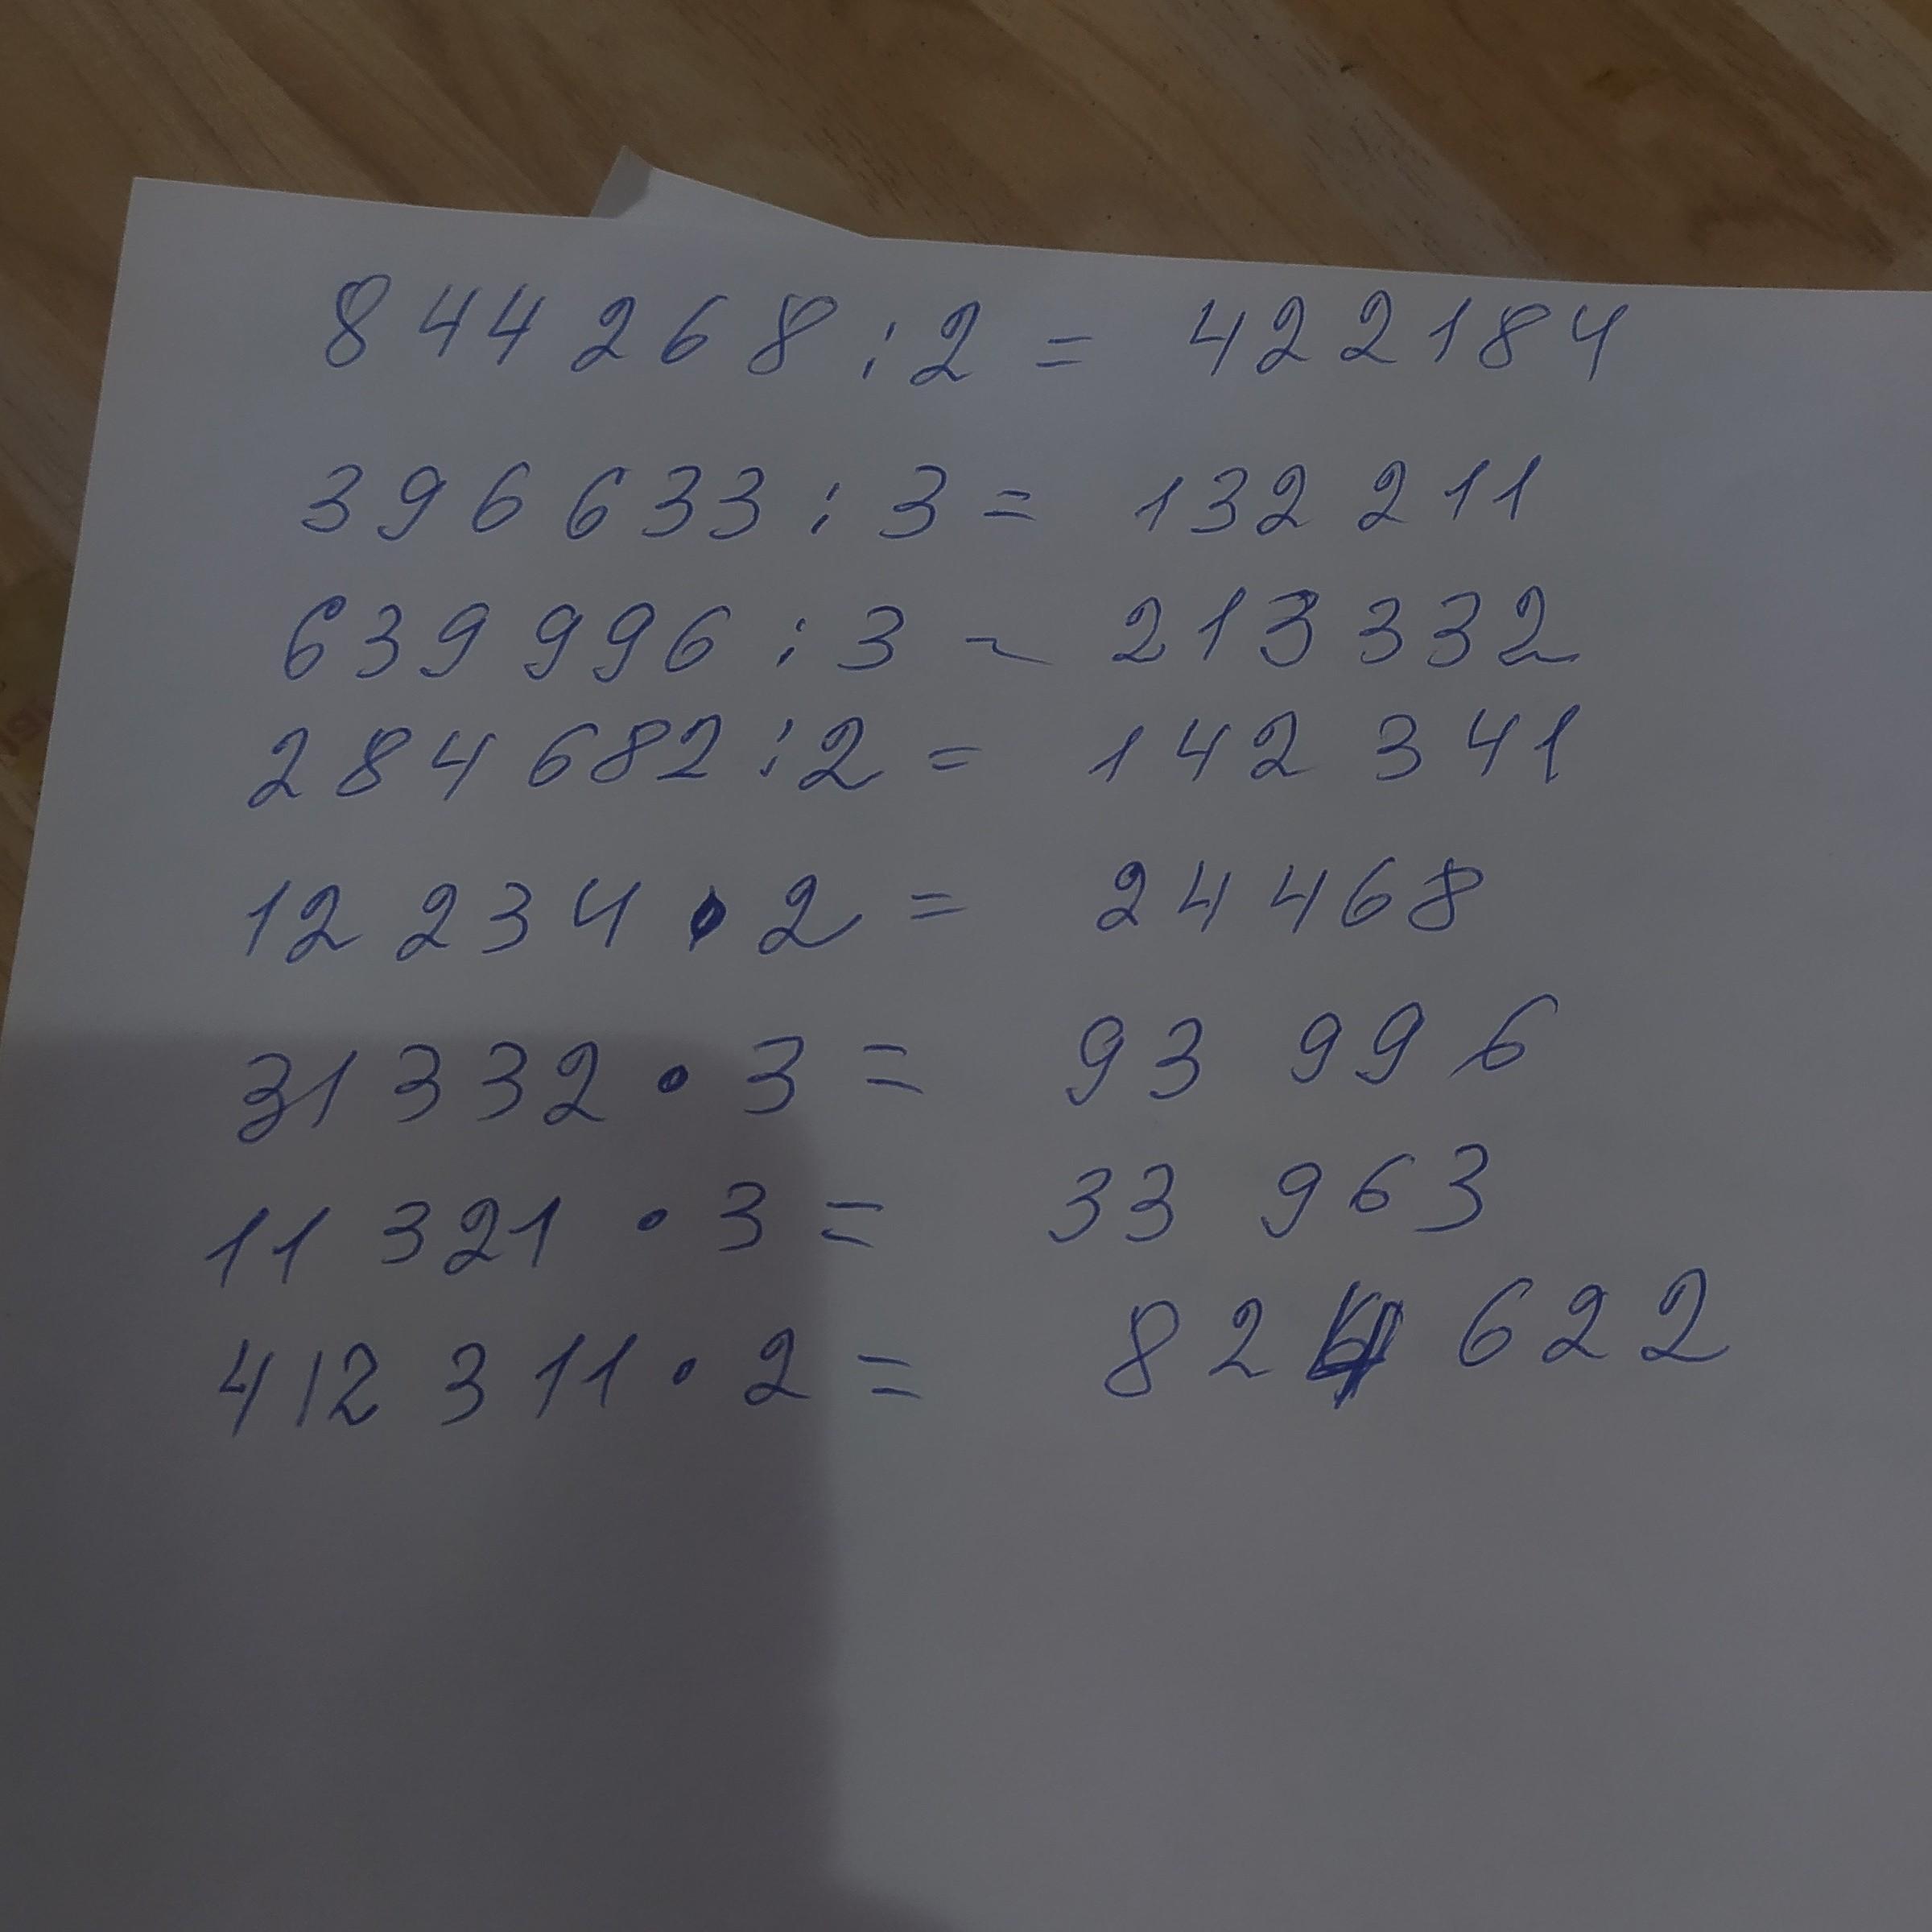 844 268 : 2 = 422184
396 633 : 3 = 132 211
639 996 : 3 ~ 213 332
284 682 : 2 = 142 341
12 234 • 2 = 24468
31 332 • 3 = 93 996
11 321 • 3 = 33 963
412 311 • 2 = 824 622